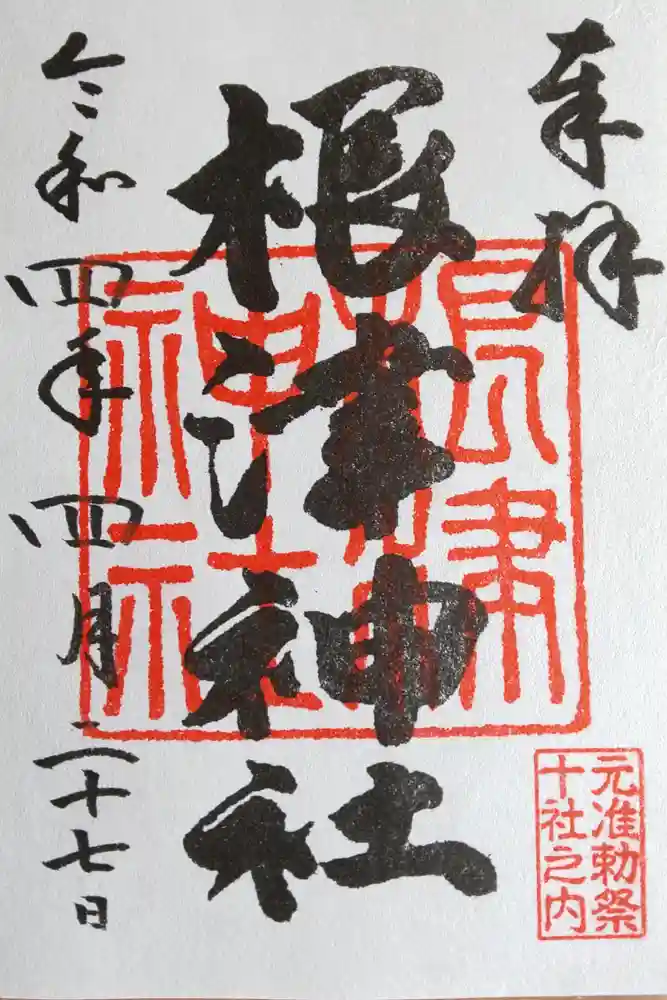 奉拝
根津神社
根津神社
元准勅祭
十社之内
令和四年四月二十七日